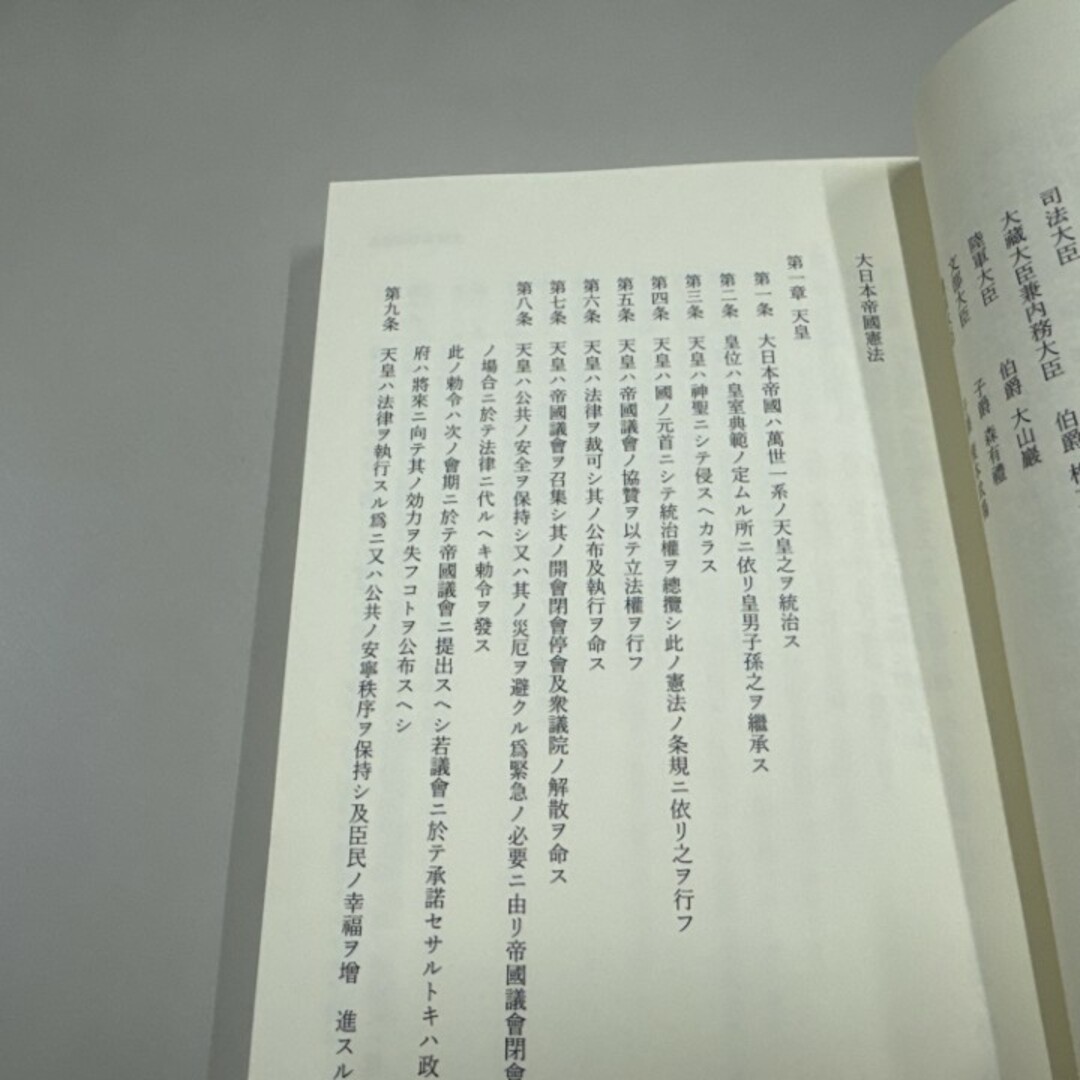 司法大臣 伯爵
大藏大臣兼內務大臣
陸軍大臣 伯爵 大山巖
文部大臣 子爵 森有禮
大日本帝國憲法
第一章 天皇
第一条 大日本帝國ハ萬世一系ノ天皇之ヲ統治ス
第二条 皇位ハ皇室典範ノ定ムル所ニ依リ皇男子孫之ヲ繼承ス
第三条 天皇ハ神聖ニシテ侵スヘカラス
第四条 天皇ハ國ノ元首ニシテ統治權ヲ總攬シ此ノ憲法ノ条規ニ依リ之ヲ行フ
第五条 天皇ハ帝國議會ノ協贊ヲ以テ立法權ヲ行フ
第六条 天皇ハ法律ヲ裁可シ其ノ公布及執行ヲ命ス
第七条 天皇ハ帝國議會ヲ召集シ其ノ開會閉會停會及衆議院ノ解散ヲ命ス
第八条 天皇ハ公共ノ安全ヲ保持シ又ハ其ノ災厄ヲ避クル爲緊急ノ必要ニ由リ帝國議會閉會
ノ場合ニ於テ法律ニ代ルヘキ勅令ヲ發ス
此ノ勅令ハ次ノ會期ニ於テ帝國議會ニ提出スヘシ若議會ニ於テ承諾セサルトキハ政
府ハ將來ニ向テ其ノ効力ヲ失フコトヲ公布スヘシ
第九条 天皇ハ法律ヲ執行スル爲ニ又ハ公共ノ安寧秩序ヲ保持シ及臣民ノ幸福ヲ增 進スル